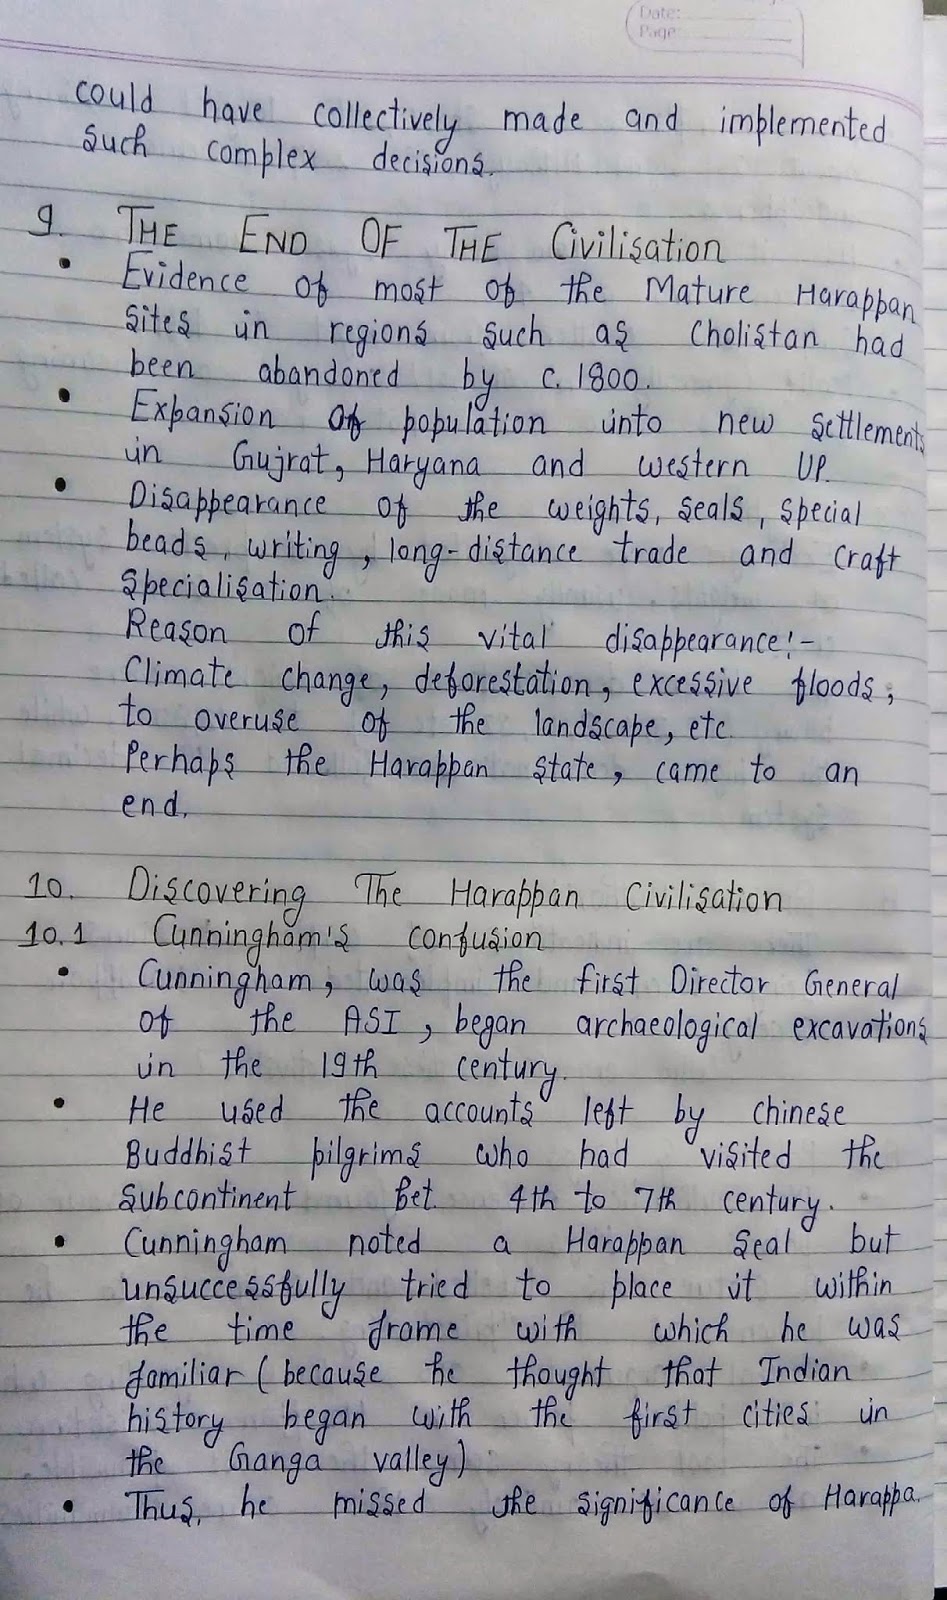 Date:
Page
could have collectively made and implemented
such complex decisions.
9. THE END OF THE Civilisation
• Evidence of most of the Mature Harappan
sites in regions such as Cholistan had
been abandoned by c. 1800.
• Expansion of population into new settlements
in Gujrat, Haryana and western UP.
• Disappearance of the weights, seals, special
beads, writing, long-distance trade and craft
specialisation.
Reason of this vital disappearance:-
Climate change, deforestation, excessive floods,
to overuse of the landscape, etc.
Perhaps the Harappan state, came to an
end.
10. Discovering The Harappan Civilisation
10.1 Cunningham's confusion
• Cunningham, was the first Director General
of the ASI, began archaeological excavations
in the 19th century.
• He used the accounts left by chinese
Buddhist pilgrims who had visited the
subcontinent bet. 4th to 7th century.
• Cunningham noted a Harappan seal but
unsuccessfully tried to place it within
the time frame with which he was
familiar (because he thought that Indian
history began with the first cities in
the Ganga valley)
• Thus, he missed the significance of Harappa.